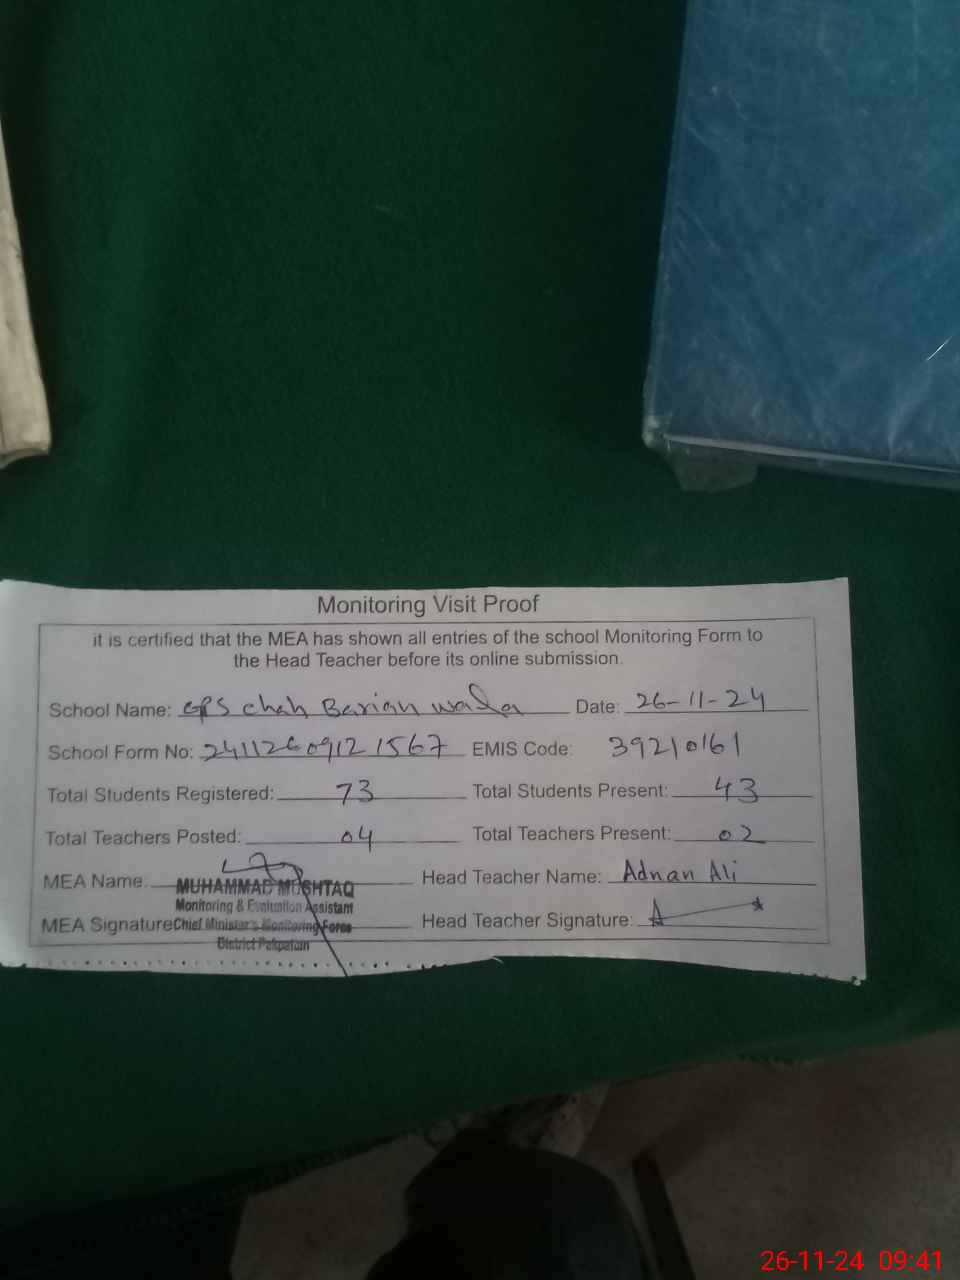 Monitoring Visit Proof
it is certified that the MEA has shown all entries of the school Monitoring Form to
the Head Teacher before its online submission.
School Name: GPS chah Barian wala Date: 26-11-24
School Form No: 24112609121567 EMIS Code: 39210161
Total Students Registered: 73 Total Students Present: 43
Total Teachers Posted: 04 Total Teachers Present: 02
MEA Name: MUHAMMAD MUSHTAQ Head Teacher Name: Adnan Ali
Monitoring & Evaluation Assistant
MEA Signature Chief Minister's Monitoring Force Head Teacher Signature:
District Pakpattan
26-11-24 09:41